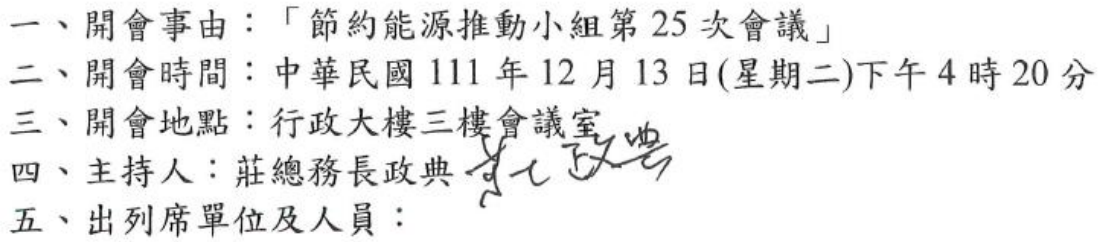 一、開會事由：「節約能源推動小組第 25 次會議」
二、開會時間：中華民國 111 年 12 月 13 日(星期二)下午 4 時 20 分
三、開會地點：行政大樓三樓會議室
四、主持人：莊總務長政典 莊政典
五、出列席單位及人員：